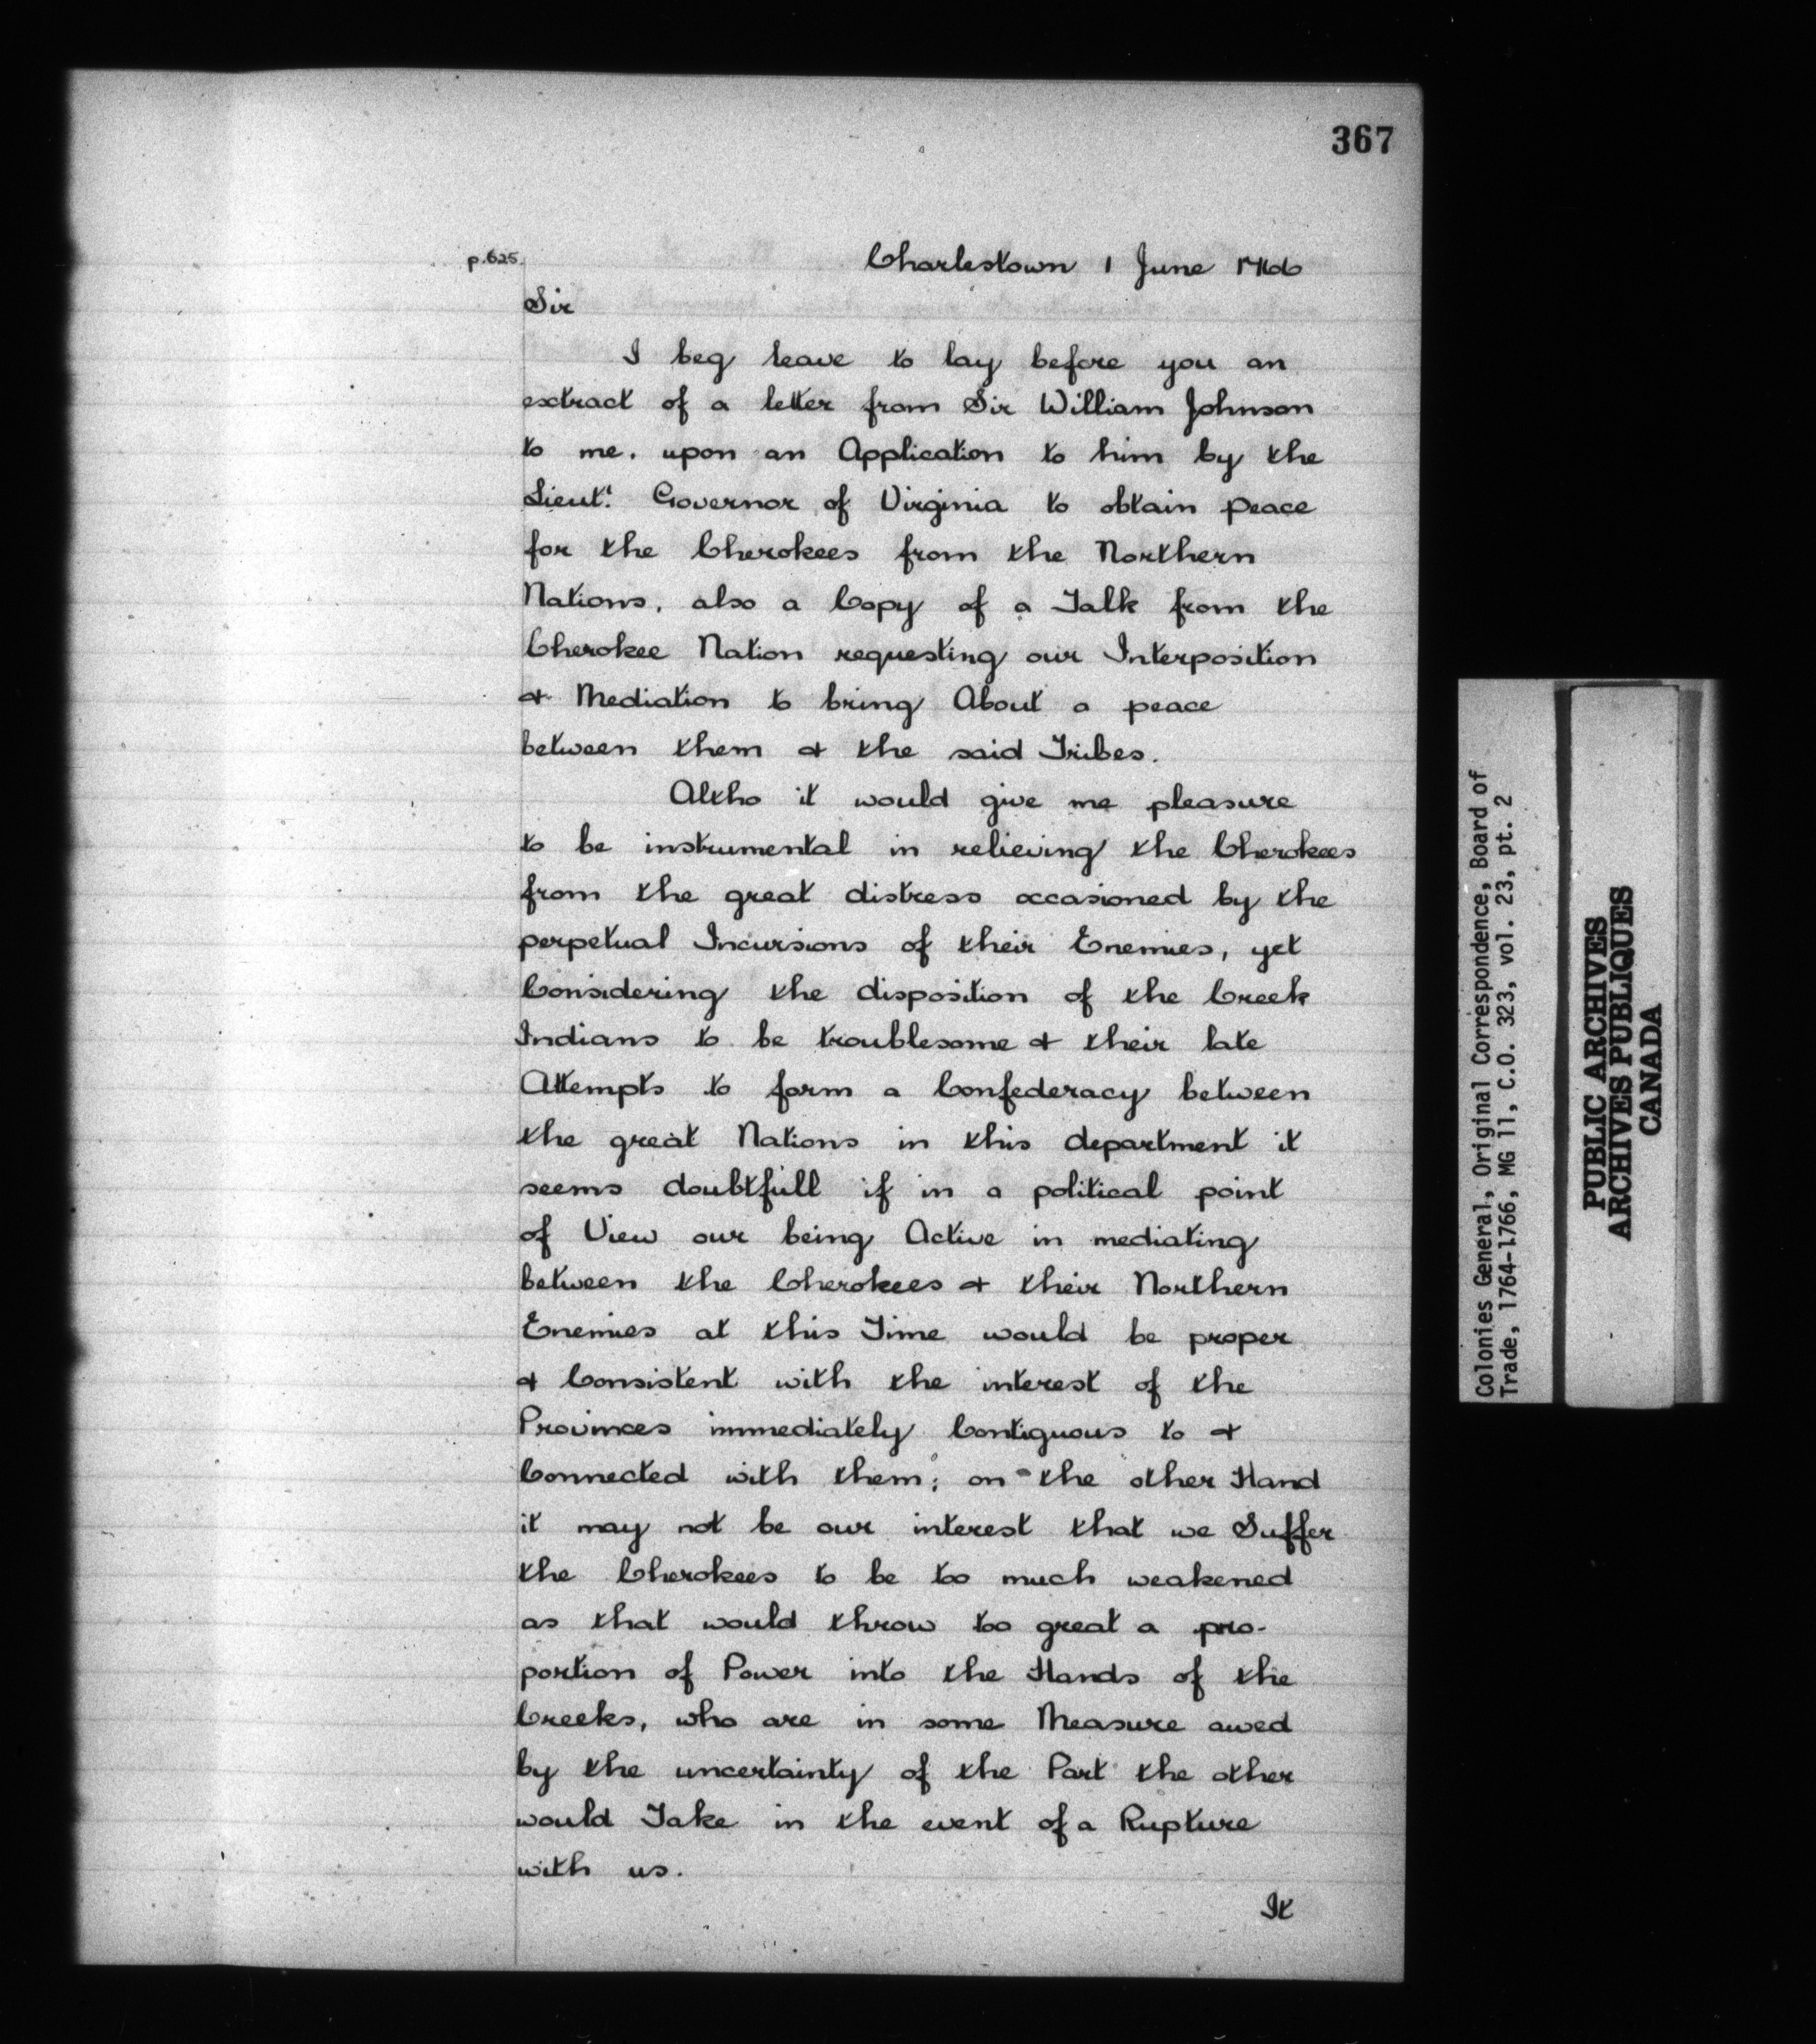 367
p.625.
Charlestown 1 June 1766
Sir
I beg leave to lay before you an
extract of a letter from Sir William Johnson
to me, upon an Application to him by the
Lieut.t Governor of Virginia to obtain peace
for the Cherokees from the Northern
Nations, also a Copy of a Talk from the
Cherokee Nation requesting our Interposition
& Mediation to bring About a peace
between them & the said Tribes.
Altho it would give me pleasure
to be instrumental in relieving the Cherokees
from the great distress occasioned by the
perpetual Incursions of their Enemies, yet
Considering the disposition of the Creek
Indians to be troublesome & their late
Attempts to form a Confederacy between
the great Nations in this department it
seems doubtfull if in a political point
of View our being Active in mediating
between the Cherokees & their Northern
Enemies at this Time would be proper
& Consistent with the interest of the
Provinces immediately Contiguous to &
Connected with them; on the other Hand
it may not be our interest that we Suffer
the Cherokees to be too much weakened
as that would throw too great a pro-
portion of Power into the Hands of the
Creeks, who are in some Measure awed
by the uncertainty of the Part the other
would Take in the event of a Rupture
with us.
It
Colonies General, Original Correspondence, Board of
Trade, 1764-1766, MG 11, C.O. 323, vol. 23, pt. 2
PUBLIC ARCHIVES
ARCHIVES PUBLIQUES
CANADA